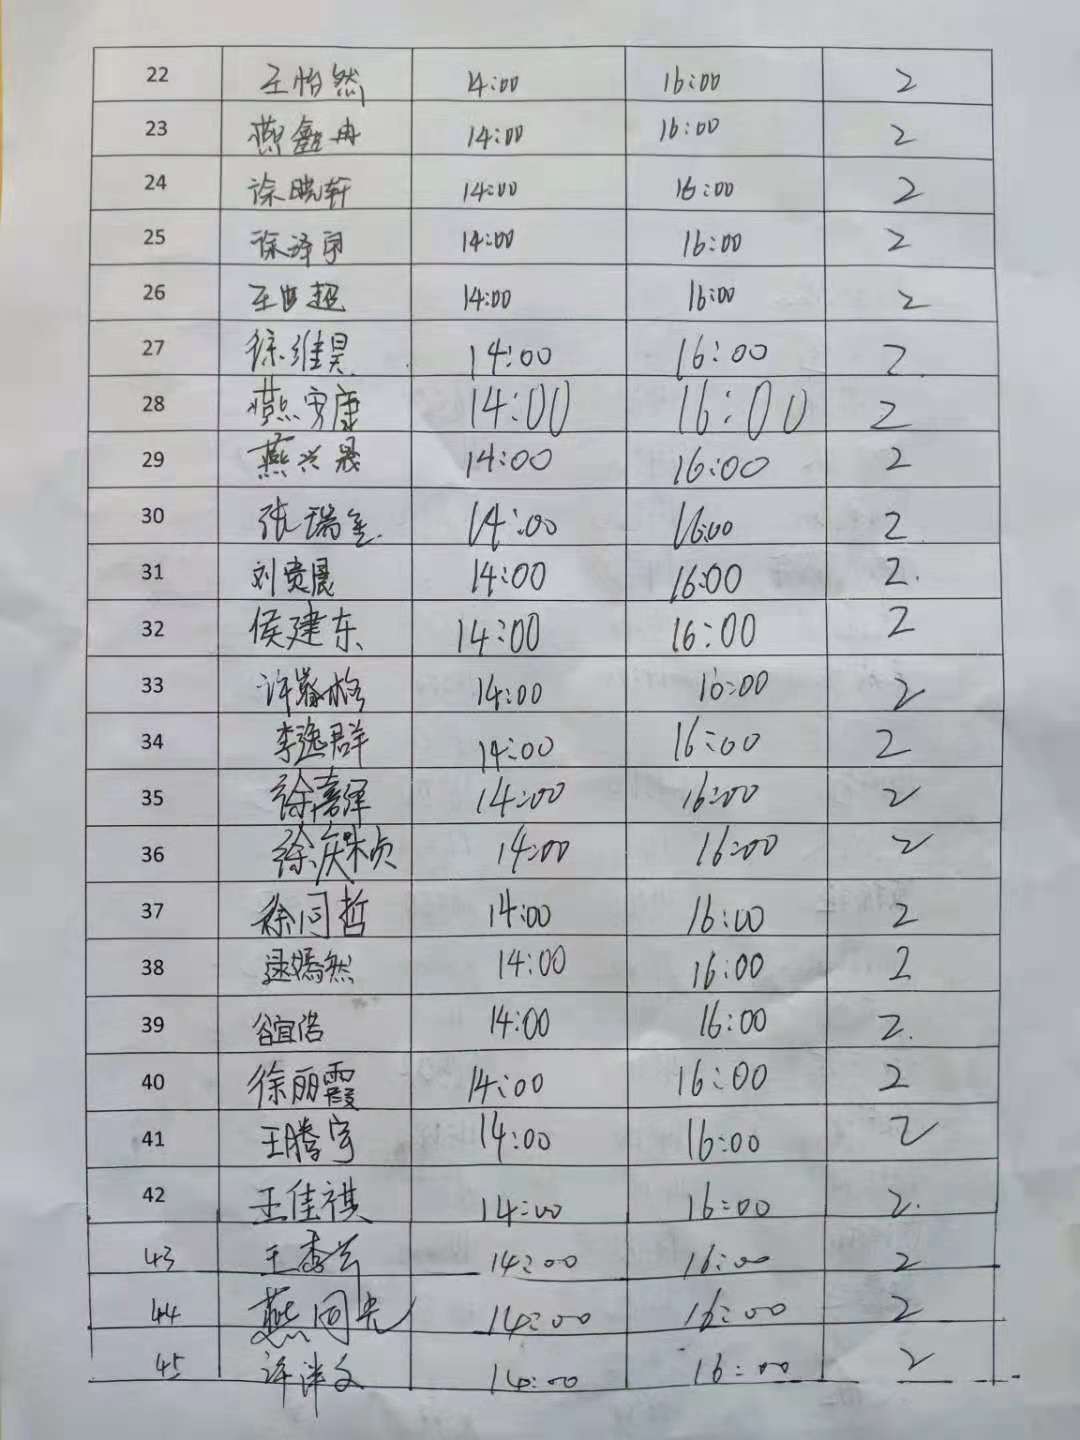 22 王怡然 14:00 16:00 2
23 燕鑫冉 14:00 16:00 2
24 徐晓轩 14:00 16:00 2
25 徐泽宇 14:00 16:00 2
26 王世超 14:00 16:00 2
27 徐维昊 14:00 16:00 2
28 燕安康 14:00 16:00 2
29 燕兴晟 14:00 16:00 2
30 张瑞 14:00 16:00 2
31 刘贵晨 14:00 16:00 2
32 侯建东 14:00 16:00 2
33 许 格 14:00 16:00 2
34 李逸群 14:00 16:00 2
35 徐嘉泽 14:00 16:00 2
36 徐庆 14:00 16:00 2
37 徐同哲 14:00 16:00 2
38 逯嫣然 14:00 16:00 2
39 谷宜浩 14:00 16:00 2
40 徐丽霞 14:00 16:00 2
41 王腾宇 14:00 16:00 2
42 王佳祺 14:00 16:00 2
43 王秀兰 14:00 16:00 2
44 燕同光 14:00 16:00 2
45 许洋文 14:00 16:00 2